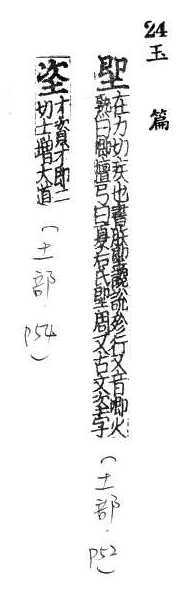 24 玉篇
堲
在力切疾也書朕堲讒說殄行又音唧火
熟曰堲檀弓曰夏后氏堲周又古文垐字
(土部.P52)
垐
才資才即二
切土增大道
(土部.P54)